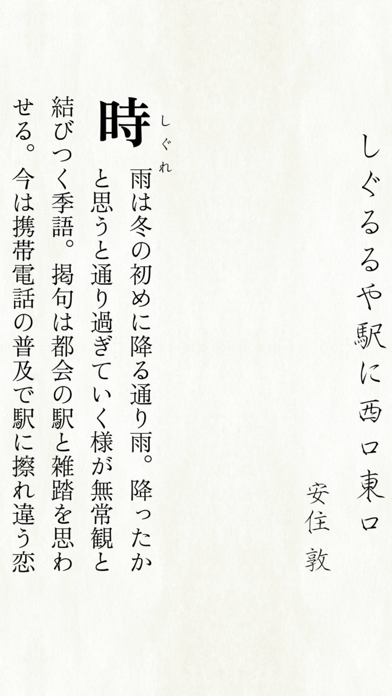 しぐるるや駅に西口東口
安住敦
時雨は冬の初めに降る通り雨。降ったか
しぐれ
と思うと通り過ぎていく様が無常観と
結びつく季語。掲句は都会の駅と雑踏を思わ
せる。今は携帯電話の普及で駅に擦れ違う恋